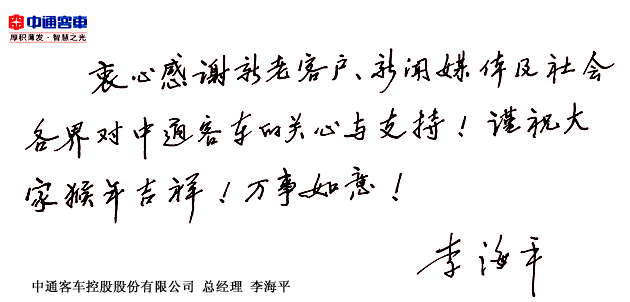 中通客車
厚积薄发·智慧之光
衷心感谢新老客户、新闻媒体及社会
各界对中通客车的关心与支持！谨祝大
家猴年吉祥！万事如意！
李海平
中通客车控股股份有限公司 总经理 李海平